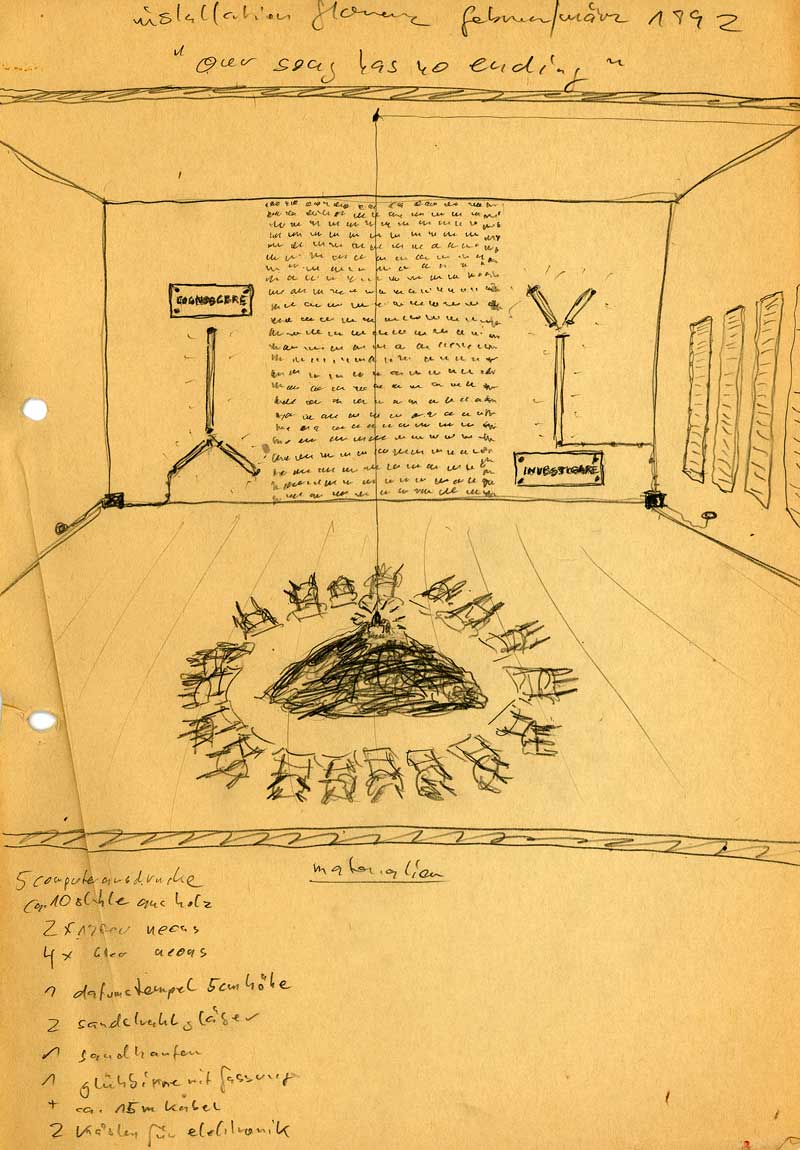 installation florenz februar/märz 1992
"our song has no ending"
COGNOSCERE
INVESTIGARE
materialien
5 computerausdrucke
ca. 10 stühle aus holz
2 x 120cm neons
4 x 60cm neons
1 datumstempel 5cm höhe
2 sandstrahlgläser
1 sandhaufen
1 glühbirne mit fassung
+ ca. 15m kabel
2 kästen für elektronik